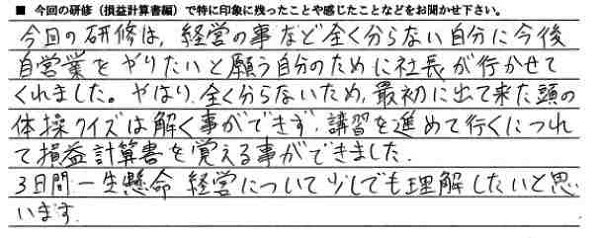 ■ 今回の研修（損益計算書編）で特に印象に残ったことや感じたことなどをお聞かせ下さい。
今回の研修は、経営の事など全く分らない自分に今後
自営業をやりたいと願う自分のために社長が行かせて
くれました。やはり、全く分らないため、最初に出て来た頭の
体操クイズは解く事ができず、講習を進めて行くにつれ
て損益計算書を覚える事ができました.
3日間一生懸命 経営について少しでも理解したいと思
います.